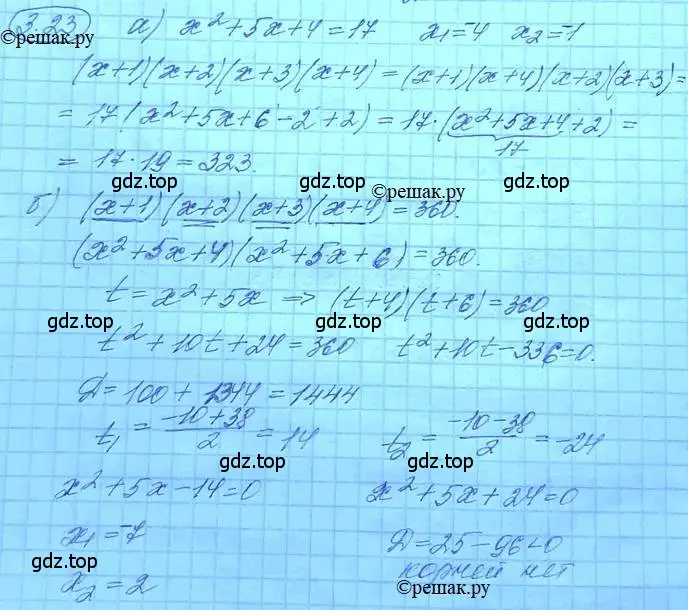 3.23 а) x²+5x+4=17 x₁=-4 x₂=-1
©решак.ру
(x+1)(x+2)(x+3)(x+4)=(x+1)(x+4)(x+2)(x+3)=
=17(x²+5x+6-2+2)=17·(x²+5x+4+2)=
17
=17·19=323.
gdz.top gdz.top ©решак.ру gdz.top
б) (x+1)(x+2)(x+3)(x+4)=360.
(x²+5x+4)(x²+5x+6)=360.
t=x²+5x => (t+4)(t+6)=360
gdz.top gdz.top gdz.top
t²+10t+24=360 t²+10t-336=0.
Д=100+1344=1444
gdz.top gdz.top gdz.top
t₁=(-10+38)/2=14 t₂=(-10-38)/2=-24
gdz.top gdz.top
x²+5x-14=0 x²+5x+24=0
x₁=-7 Д=25-96<0
x₂=2 корней нет
©решак.ру